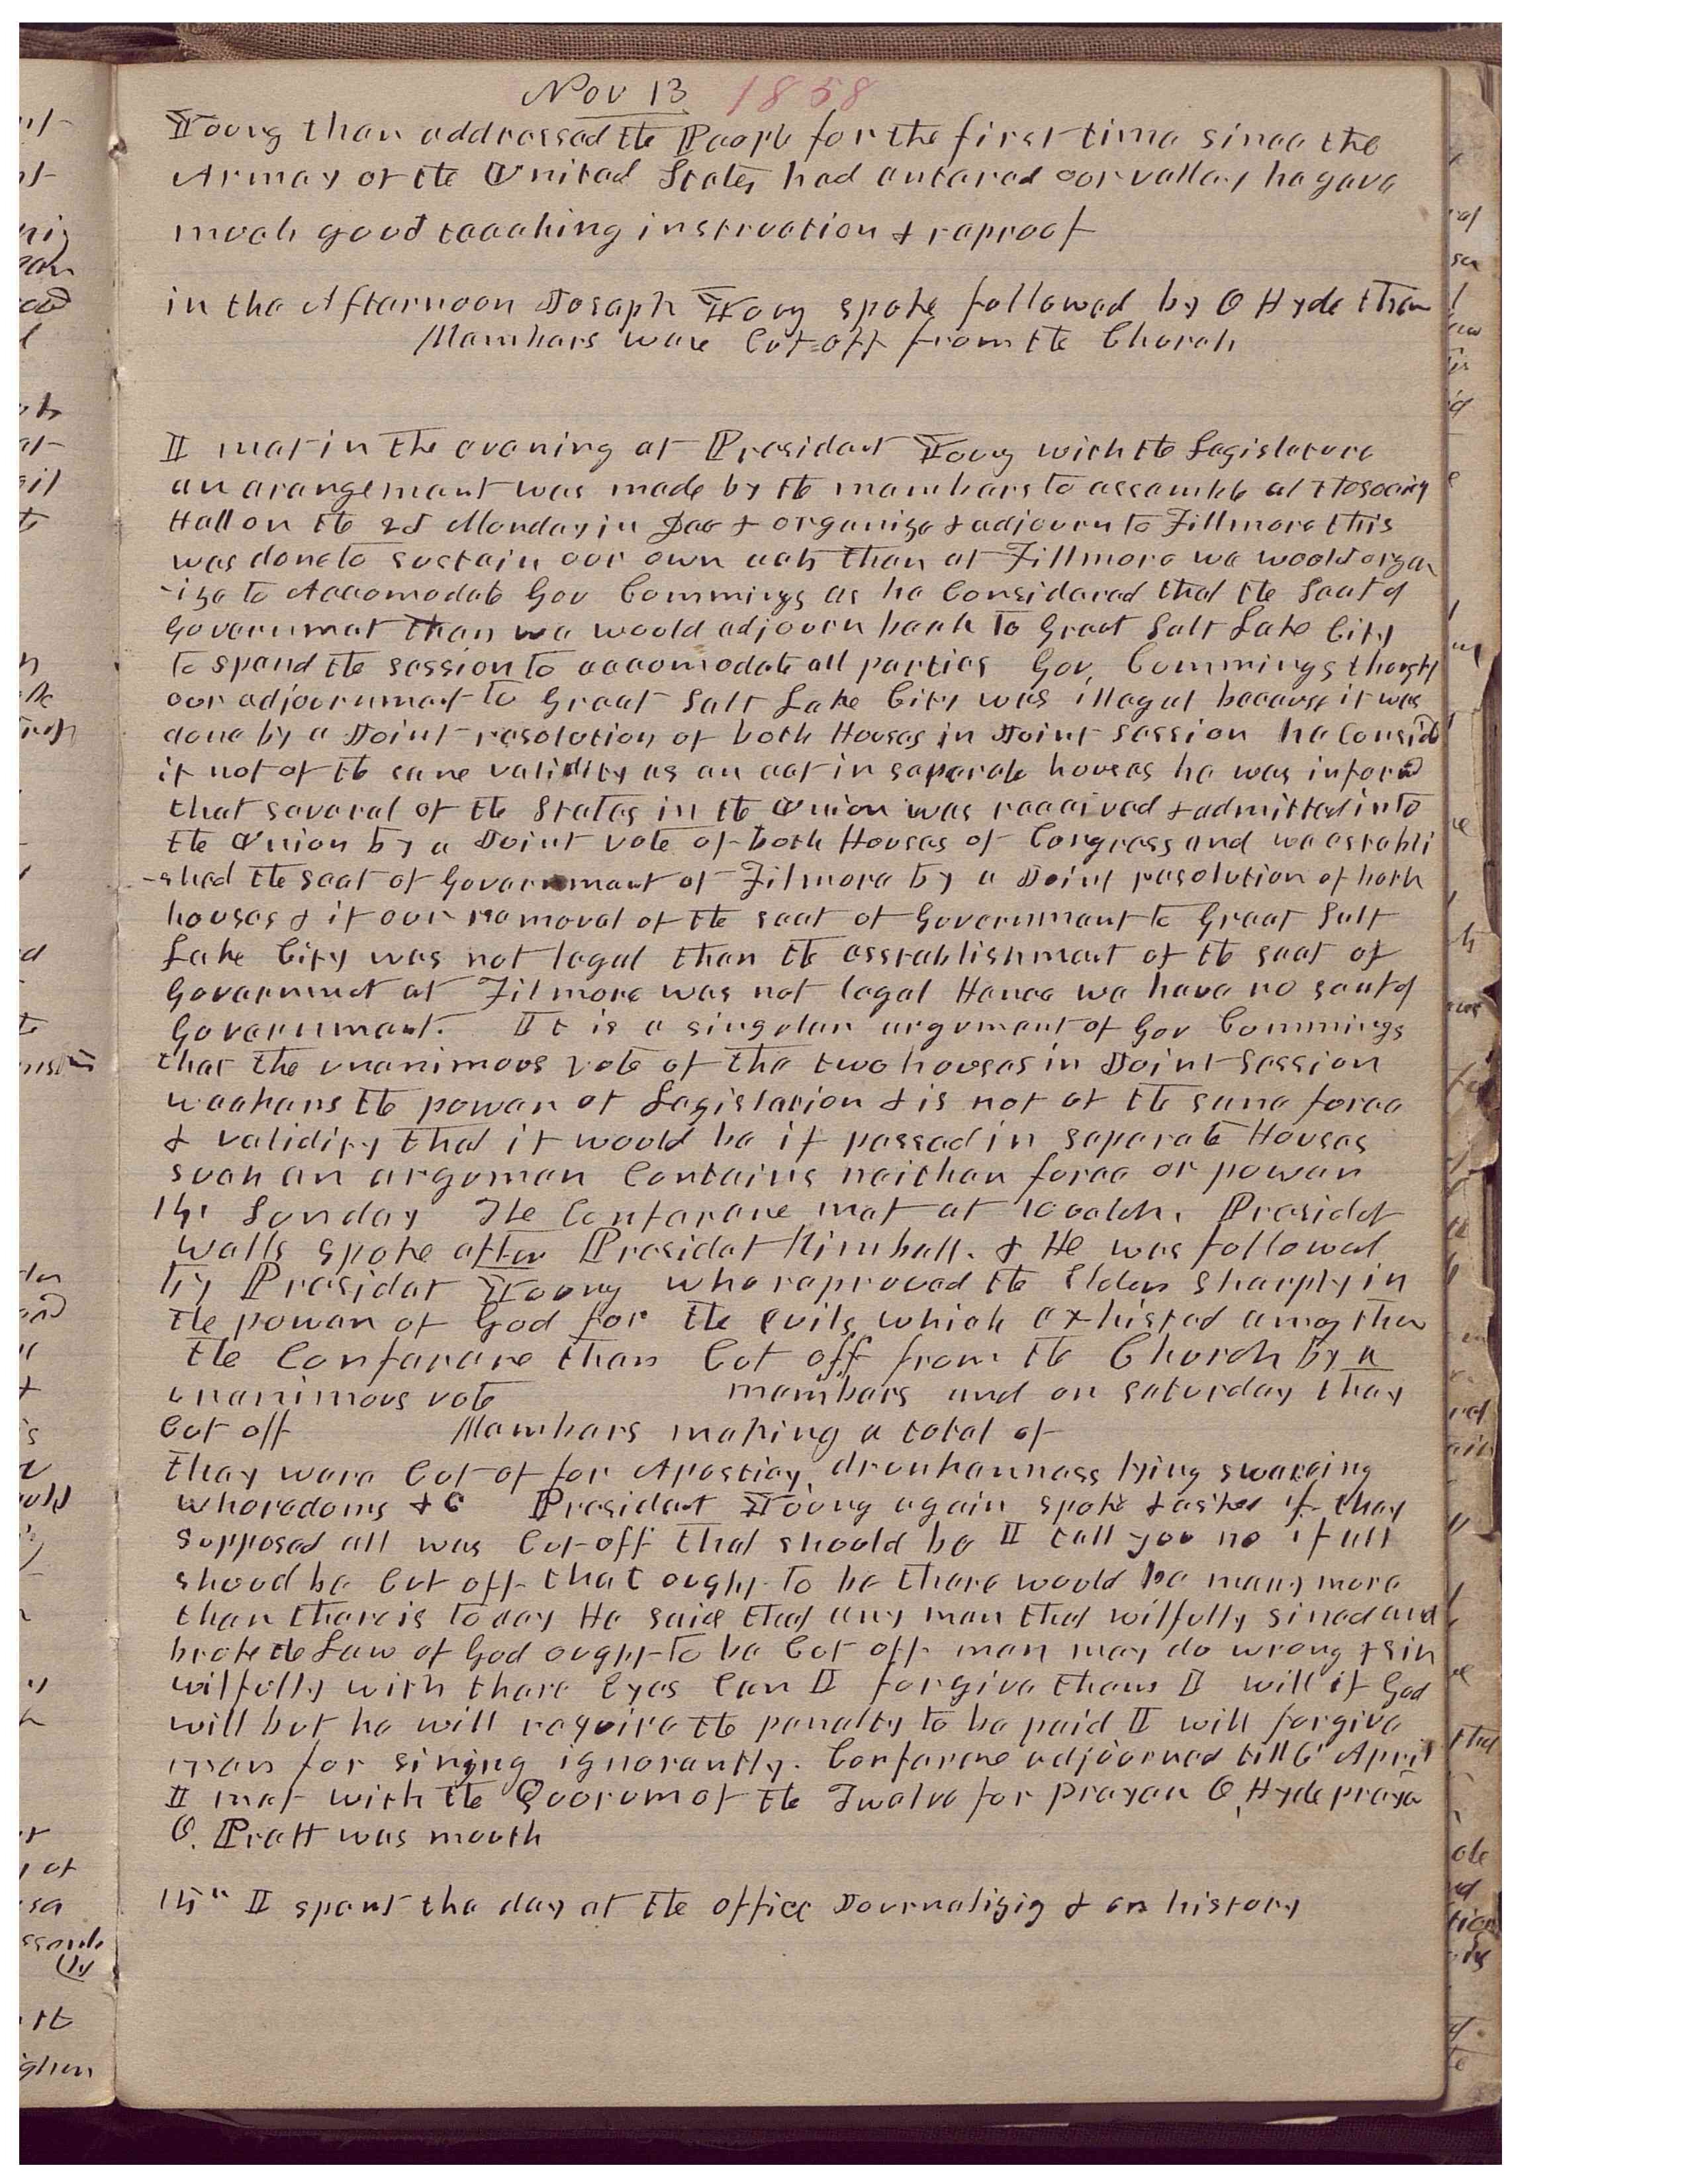 Nov 13 1858
Young then addressed the People for the first time since the
Armay of the United States had entered our valley he gave
much good teaching instruction & reproof
in the Afternoon Joseph Young spoke followed by O Hyde then
Members ware Cut off from the Church
I met in the evening at President Young with the Legislature
an arangement was made by the members to assemble at the social
Hall on the 2d Monday in Dec & organize & adjourn to Fillmore this
was done to sustain our own acts then at Fillmore we would organ
-ize to Accomodate Gov Cummings as he Considered that the Seat of
Government then we would adjourn back to Great Salt Lake City
to spend the session to accomodate all parties Gov. Cummings thought
our adjournment to Great Salt Lake City was illegal because it was
done by a Joint resolution of both Houses in Joint session he Consid
it not of the same validity as an act in seperate houses he was informd
that several of the States in the Union was received & admitted into
the Union by a Joint vote of both Houses of Congress and we establi
-shed the seat of Government at Filmore by a Joint resolution of both
houses & if our removal of the seat of Government to Great Salt
Lake City was not legal then the esstablishment of the seat of
Government at Filmore was not legal Hence we have no seat of
Government. It is a singular argument of Gov Cummings
that the unanimous vote of the two houses in Joint Session
weakens the power of Legislation & is not of the same force
& validity that it would be if passed in separate Houses
such an argumen Contains neither force or power
14' Sunday The Conference met at 10 oclok. Presidet
Wells spoke after Presidet Kimball. & He was followed
by Presidet Young who reproved the Elders sharply in
the power of God for the evils which exhisted among them
the Conference then Cut off from the Church by a
unanimous vote members and on saturday they
Cut off Members making a total of
they ware Cut of for Aposticy, drunkenness lying swareing
whoredoms & c President Young again spoke & asked if they
supposed all was Cut off that should be I tell you no if all
shoud be Cut off that ought to be there would be many more
than there is to day He said that any man that wilfully sined and
broke the Law of God ought to be Cut off men may do wrong & sin
wilfully with there Eyes Can I forgive them I will if God
will but he will require the penalty to be paid I will forgive
man for sining ignorantly. Conferene adjourned till 6' April
I met with the Quorum of the Twelve for prayer O, Hyde prayed
O. Pratt was mouth
15" I spent the day at the office Journalizig & on history